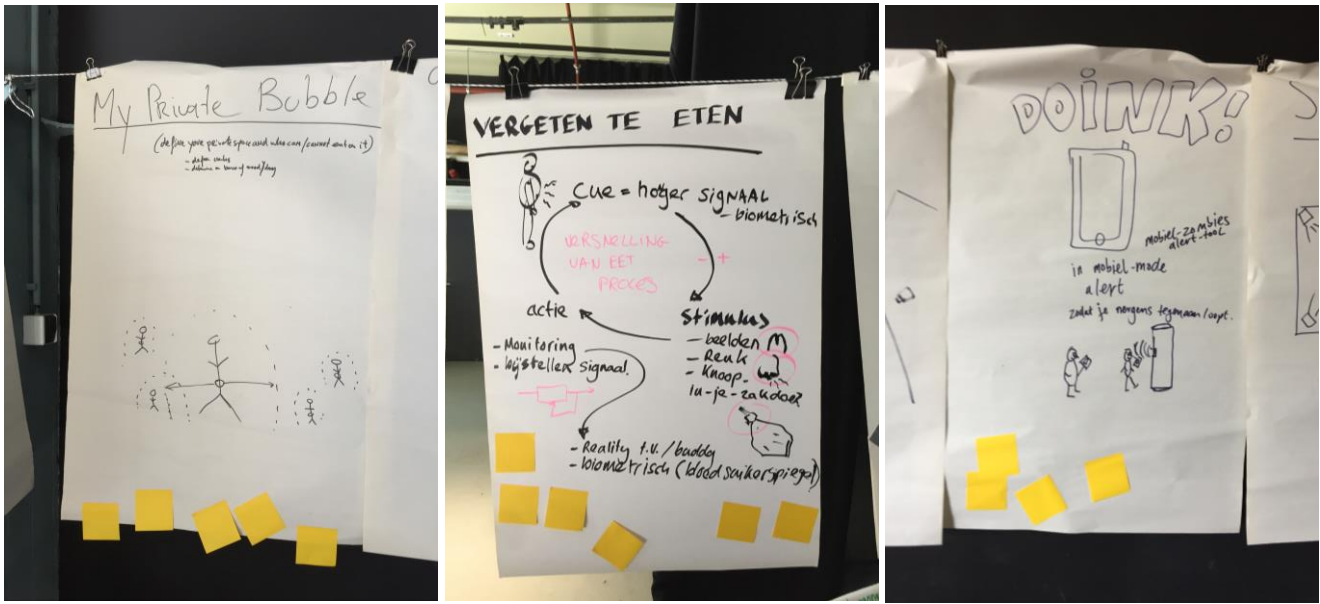 My Private Bubble
(define your private space and who can/cannot enter it)
- define
VERGETEN TE ETEN
Cue = hoger SIGNAAL
- biometrisch
VERSNELLING
VAN EET
PROCES
- +
actie
Stimulus
- beelden
- Reuk
- Knoop
in-je-zakdoek
- Monitoring
- bijstellen signaal.
- Reality t.v./buddy
- biometrisch (bloedsuikerspiegel)
DOINK!
mobiel-zombies
alert-tool
in mobiel-mode
alert
zodat je nergens tegenaan loopt.